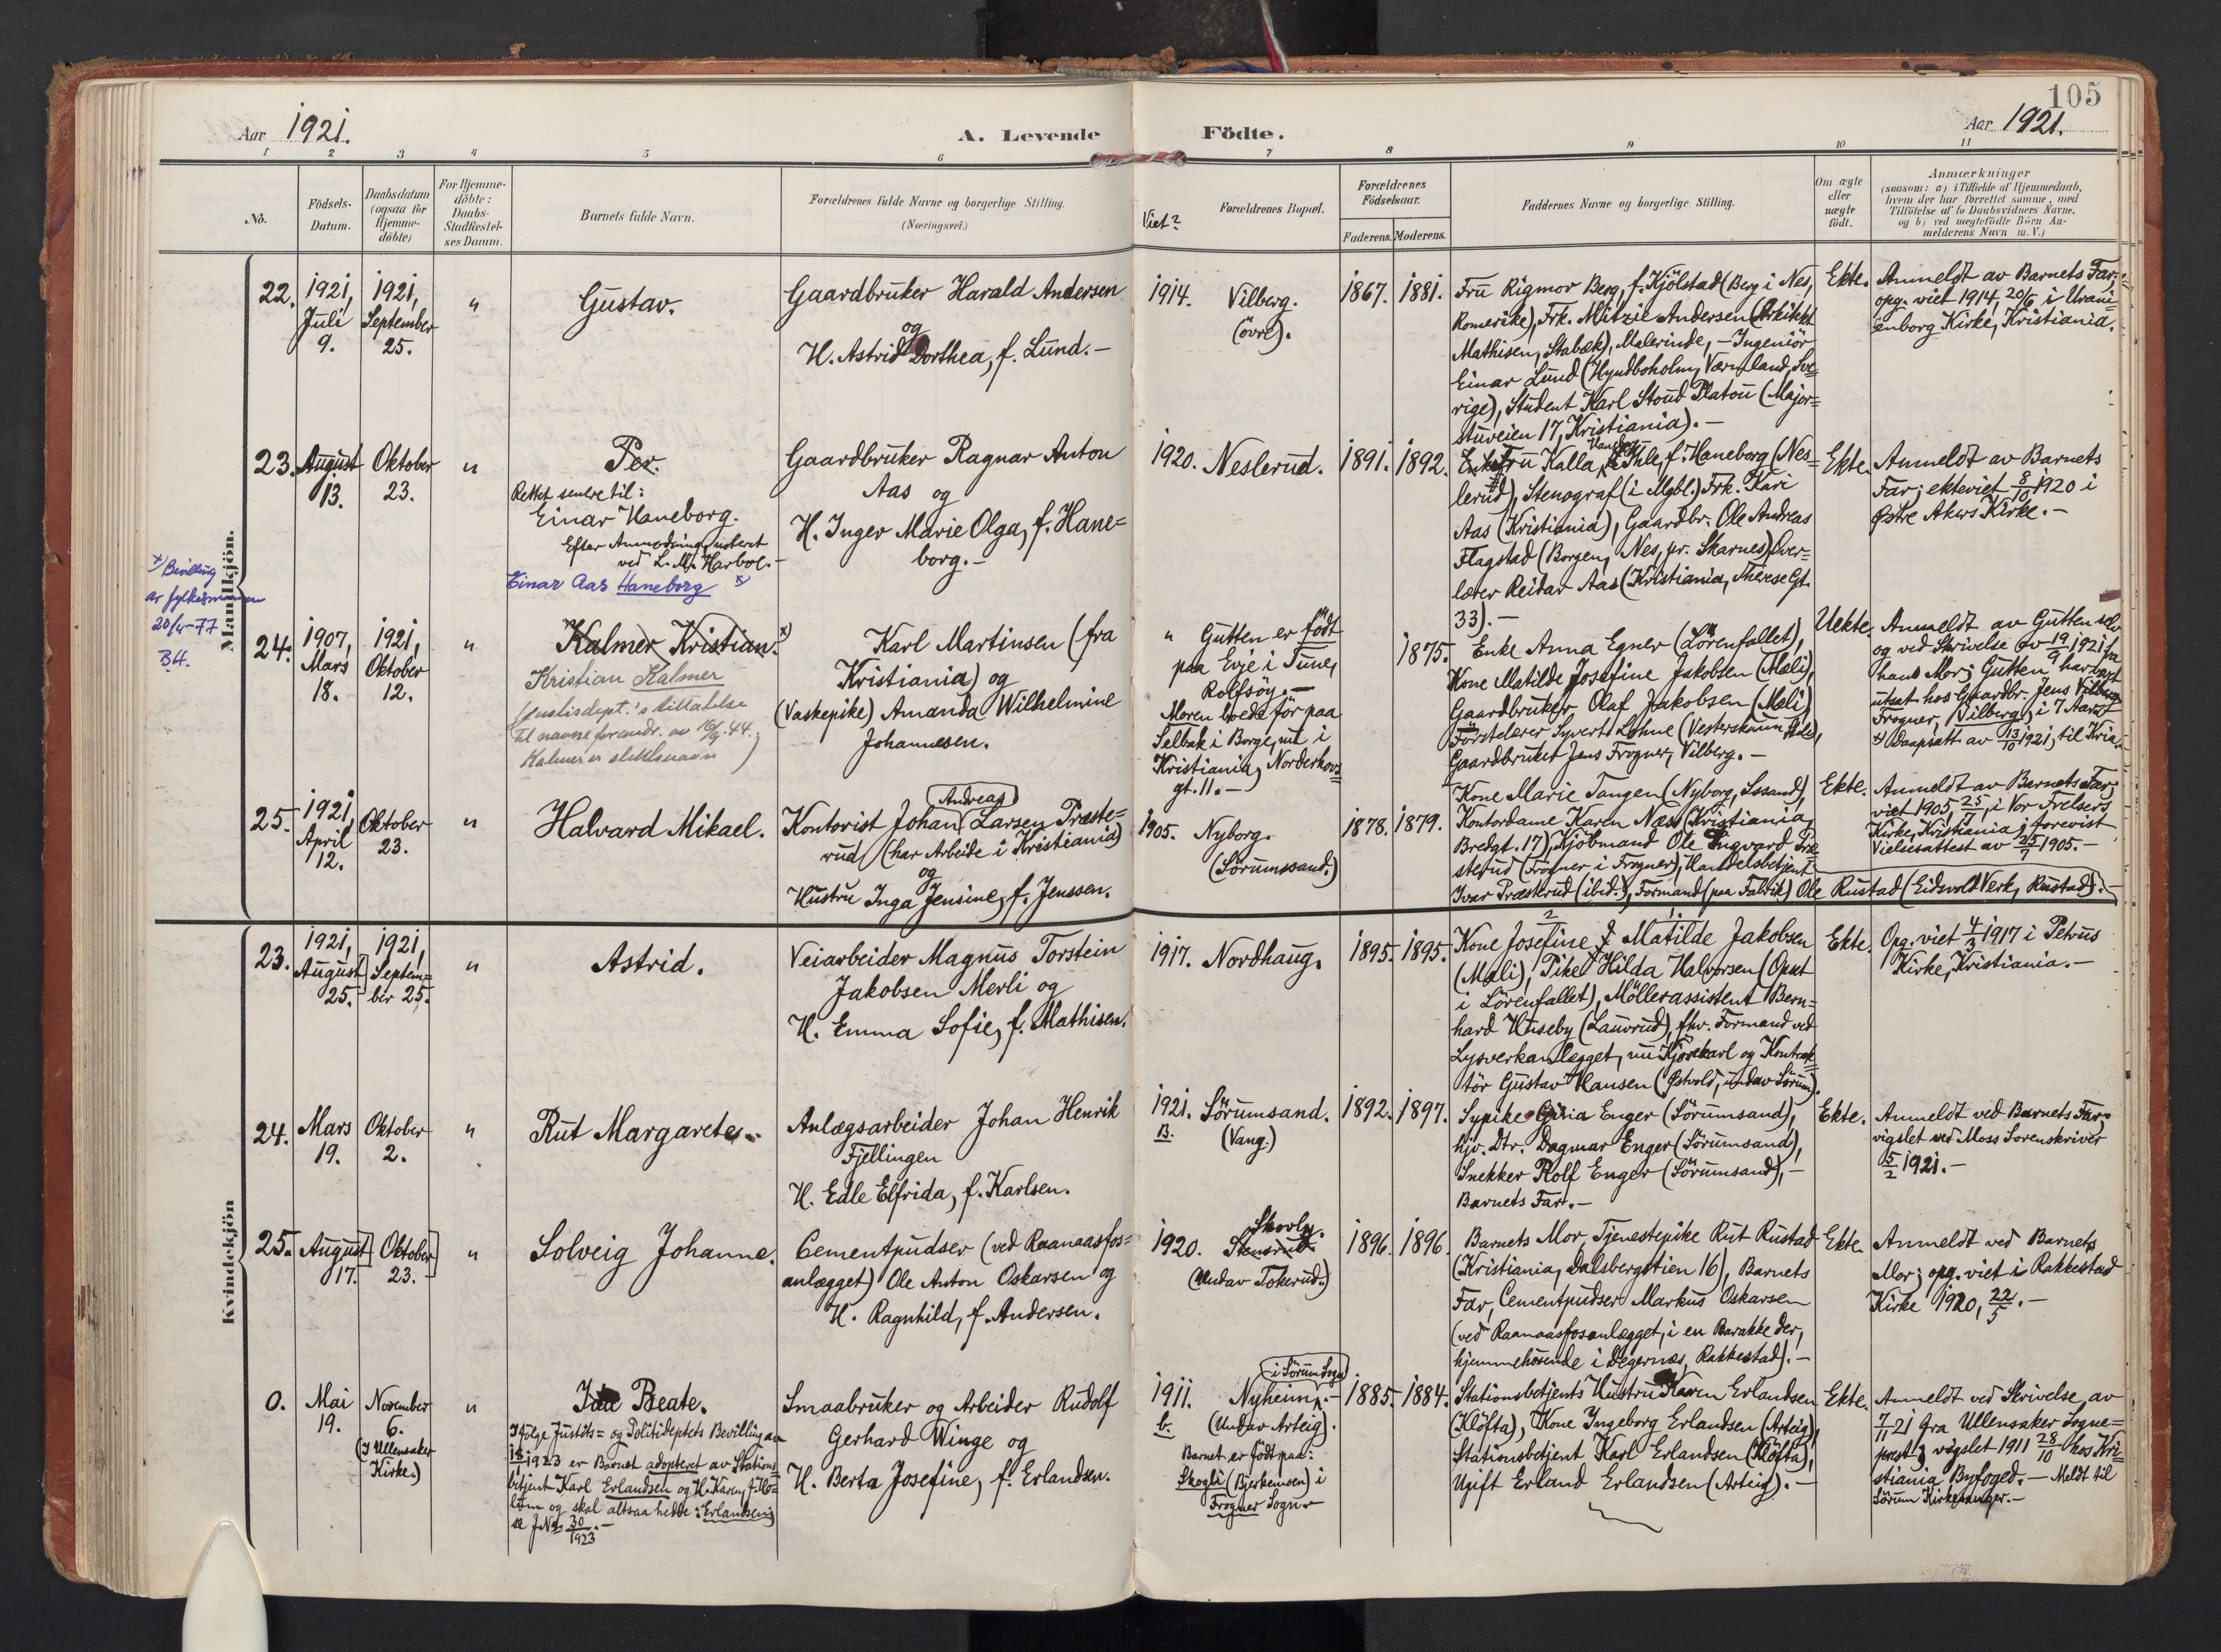 105
Aar 1921.
A. Levende Födte.
Aar 1921.
1 2 3 4 5 6 7 8 9 10 11
No.
Födsels-
Datum.
Daabsdatum
(ogsaa for
Hjemme-
döbte)
For Hjemme-
döbte:
Daabs-
Stadfæstel-
ses Datum.
Barnets fulde Navn.
Forældrenes fulde Navne og borgerlige Stilling.
(Næringsvei.)
Viet?
Forældrenes Bopæl.
Forældrenes
Födselsaar.
Faderens. Moderens.
Faddernes Navne og borgerlige Stilling.
Om ægte
eller
uægte
födt.
Anmærkninger
(saasom: a) i Tilfælde af Hjemmedaab,
hvem der har forrettet samme, med
Tilföielse af to Daabsvidners Navne,
og b) ved uegtefödte Börn An-
melderens Navn m. V.)
Mandkjön.
22.
1921,
Juli
9.
1921,
September
25.
"
Gustav.
Gaardbruker Harald Andersen
og
H. Astrid Dorthea, f. Lund. -
1914.
Vilberg.
(övre).
1867. 1881.
Fru Rigmor Berg, f. Kjölstad (Berg i Nes,
Romerike), Frk. Mitzie Andersen (Arkitekt
Mathisen, Stabæk), Malerinde, - Ingeniör
Einar Lund (Hyndboholm, Værmland, Sve=
rige), Student Karl Stoud Platou (Major=
stuveien 17, Kristiania). -
Ekte.
Anmeldt av Barnets Far;
opg. viet 1914, 20/6 i Urani=
enborg Kirke, Kristiania.
23.
August
13.
Oktober
23.
"
Per.
Rettet senere til:
Einar Haneborg.
Efter Anmodning noteret
ved L. M. Harboe. -
Einar Aas Haneborg x)
x) Bevilling
av fylkesmannen
20/4-77
BH.
Gaardbruker Ragnar Anton
Aas og
H. Inger Marie Olga, f. Hane=
borg. -
1920.
Neslerud.
1891. 1892.
Enkefru Kalla Ihle, f. Haneborg (Nes=
lerud), Stenograf (i Mgbl.) Frk. Kari
Aas (Kristiania), Gaardbr. Ole Andreas
Flagstad (Borgen, Nes, pr. Skarnes), Over=
lærer Reidar Aas (Kristiania, Therese Gt.
33). -
Ekte.
Anmeldt av Barnets
Far; ekteviet 8/10 1920 i
Østre Akers Kirke. -
24.
1907,
Mars
18.
1921,
Oktober
12.
"
Kalmer Kristian. x)
Kristian Kalmer
(Justisdept.'s tillatelse
til navneforandr. av 16/9.44.
Kalmer er slektsnavn)
Karl Martinsen (fra
Kristiania) og
(Vaskepike) Amanda Wilhelmine
Johannesen.
" Gutten er födt
paa Evje i Tune,
Rolfsöy. -
Moren boede för paa
Selbak i Borge, nu i
Kristiania, Norderhovs=
gt. 11. -
1875.
Enke Anna Egner (Lörenfallet),
Kone Matilde Josefine Jakobsen (Mæli),
Gaardbruker Olaf Jakobsen (Mæli)
Förstelærer Syvert Lohne
Gaardbruker Jens Frogner, Vilberg. -
Uekte.
Anmeldt av Gutten selv
og ved Skrivelse av 19/9 1921 fra
hans Mor; Gutten har
utsat hos Gaardbr. Jens
Frogner, Vilberg, i 7 Aar.
x) Daapsatt. av 13/10 1921, til Kria.
25.
1921,
April
12.
Oktober
23.
"
Halvard Mikael.
Andreas
Kontorist Johan Larsen Præste=
rud (har Arbeide i Kristiania)
og
Hustru Inga Jensine, f. Jenssen.
1905.
Nyborg.
(Sörumsand.)
1878. 1879.
Kone Marie Tangen (Nyborg, Sssand),
Kontordame Karen Næss (Kristiania,
Bredgt. 17), Kjöbmand Ole Ingvard Præ
sterud (Frogner i Frogner), Handelsbetjent
Ivar Præsterud (ibid.), Formand (paa Fabrik) Ole Rustad (Eidsvold Verk, Rustad). -
Ekte.
Anmeldt av Barnets Far;
viet 1905, 25/7, i Vor Frelsers
Kirke, Kristiania; forevist
Vielsesattest av 25/7 1905. -
Kvindekjön
23.
1921,
August
25.
1921,
Septem=
ber 25.
"
Astrid.
Veiarbeider Magnus Torstein
Jakobsen Merli og
H. Emma Sofie, f. Mathisen.
1917.
Nordhaug.
1895. 1895.
2 1.
Kone Josefine Matilde Jakobsen
(Mæli), Pike Hilda Halvorsen (Opnt
i Lörenfallet), Möllerassistent Bern=
hard Huseby (Lauvrud), fhv. Formand ved
Lysverkanlægget, nu Kjörekarl og Kontrak=
tör Gustav Hansen (Østvold, undav Sörum).
Ekte.
Opg. viet 4/3 1917 i Petrus
Kirke, Kristiania. -
24.
Mars
19.
Oktober
2.
"
Rut Margarete.
Anlægsarbeider Johan Henrik
Fjellingen
H. Edle Elfrida, f. Karlsen.
1921.
B.
Sörumsand.
(Vang.)
1892. 1897.
Sypike Enger (Sörumsand),
hjv. Dtr. Dagmar Enger (Sörumsand),
Snekker Rolf Enger (Sörumsand), -
Barnets Far. -
Ekte.
Anmeldt ved Barnets Far;
vigslet ved Moss Sorenskriver
5/2 1921. -
25.
August
17.
Oktober
23.
"
Solveig Johanne.
Cementpudser (ved Raanaasfos=
anlægget) Ole Anton Oskarsen og
H. Ragnhild, f. Andersen.
1920.
Skovly.
Stensrud.
(Undav Tokerud.)
1896. 1896.
Barnets Mor, Tjenestepike Rut Rustad
(Kristiania, Dalsbergstien 16), Barnets
Far, Cementpudser Markus Oskarsen
(ved Raanaasfosanlægget, i en Barakke der,
hjemmehörende i Degernes, Rakkestad). -
Ekte.
Anmeldt ved Barnets
Mor; opg. viet i Rakkestad
Kirke 1920, 22/5. -
0.
Mai
19.
November
6.
(I Ullensaker
Kirke.)
"
Beate.
Ifölge Justits= og Politideptets Bevilling av
1923 er Barnet adopteret av Stations=
betjent Karl Erlandsen og H. Karen,
og skal altsaa hedde: Erlandsen;
se J.No. 30/1923. -
Smaabruker og Arbeider Rudolf
Gerhard Winge og
H. Berta Josefine, f. Erlandsen.
1911.
b.
i Sörum Sogn
Nyheim, -
(Undav Arteig).
Barnet er födt paa:
Skogli (Bjerkemoen) i
Frogner Sogn
1885. 1884.
Stationsbetjents Hustru Karen Erlandsen
(Klöfta), Kone Ingeborg Erlandsen (Arteig),
Stationsbetjent Karl Erlandsen (Klöfta),
Ugift Erland Erlandsen (Arteig). -
Ekte.
Anmeldt ved Skrivelse av
7/11 21 fra Ullensaker Sogne=
prest; vigslet 1911 28/10 hos Kri=
stiania Byfoged. - Meldt til
Sörum Kirkesanger. -